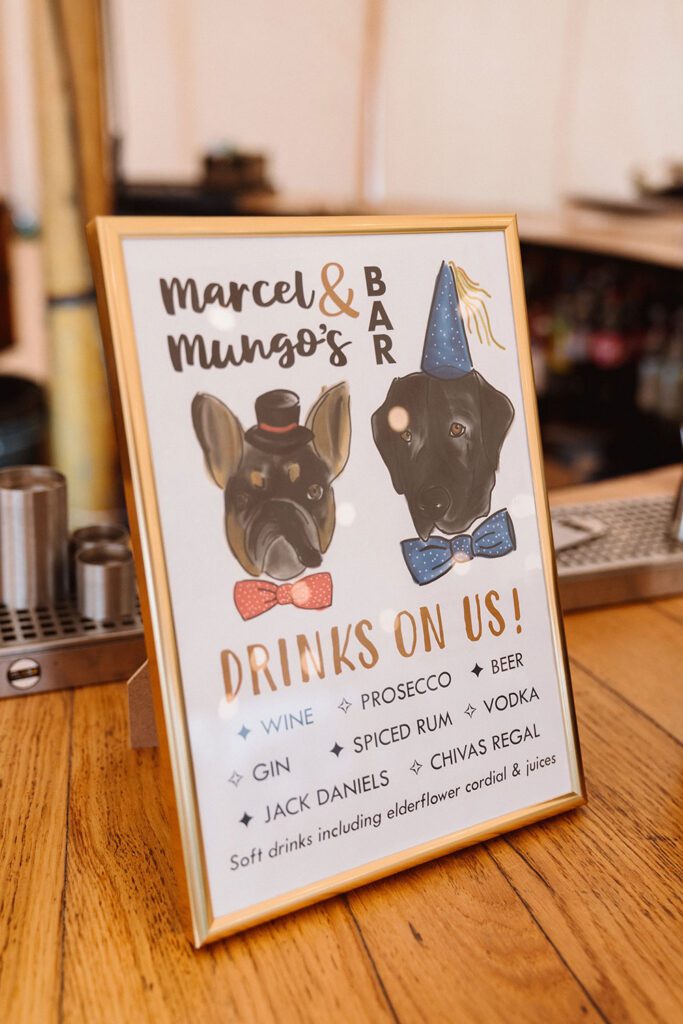 Marcel &
Mungo's
BAR
DRINKS ON US!
WINE PROSECCO BEER
GIN SPICED RUM VODKA
JACK DANIELS CHIVAS REGAL
Soft drinks including elderflower cordial & juices